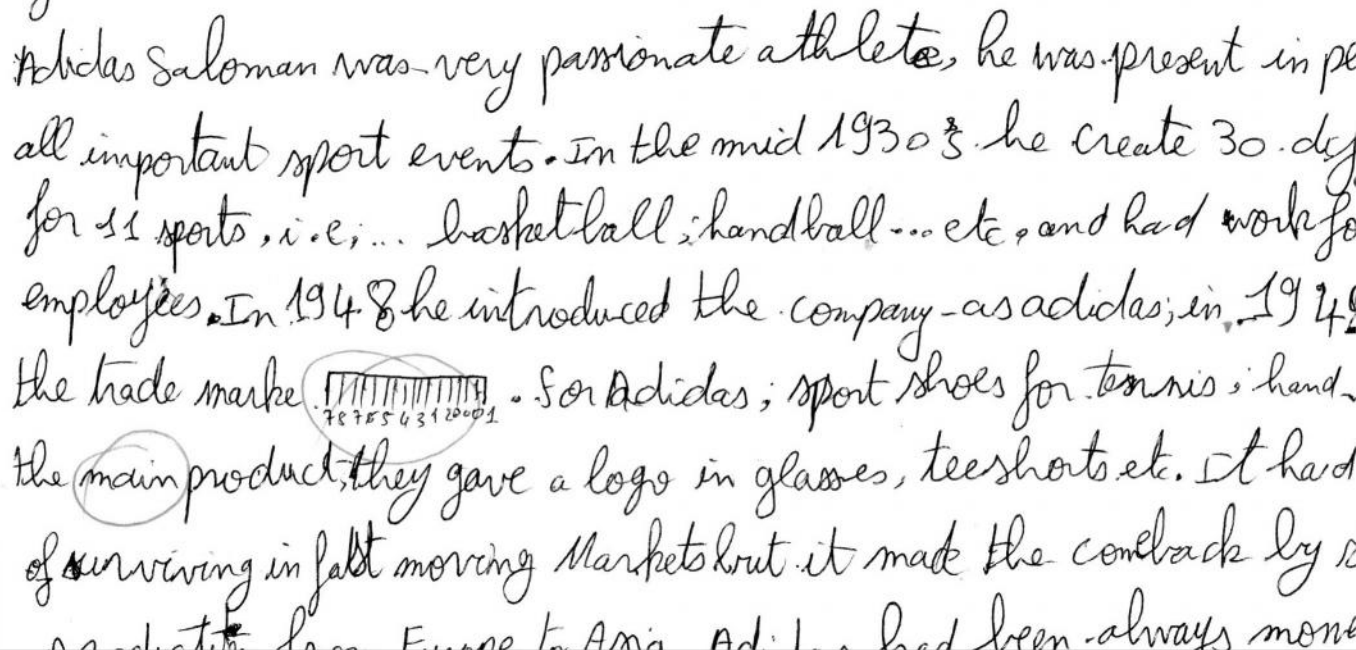 Adidas Saloman was very passionate athlete, he was present in
all important sport events. In the mid 1930's he create 30
for 11 sports, i.e,... basketball, handball... etc, and had work
employees. In 1948 he introduced the company as adidas; in 194
the trade marke 78 765 43120001. For Adidas; sport shoes for tennis; hand-
the main product; they gave a logo in glasses, teeshorts etc. It had
of surviving in fast moving Markets but it made the comeback by
from Europe to Asia. Adidas had been always